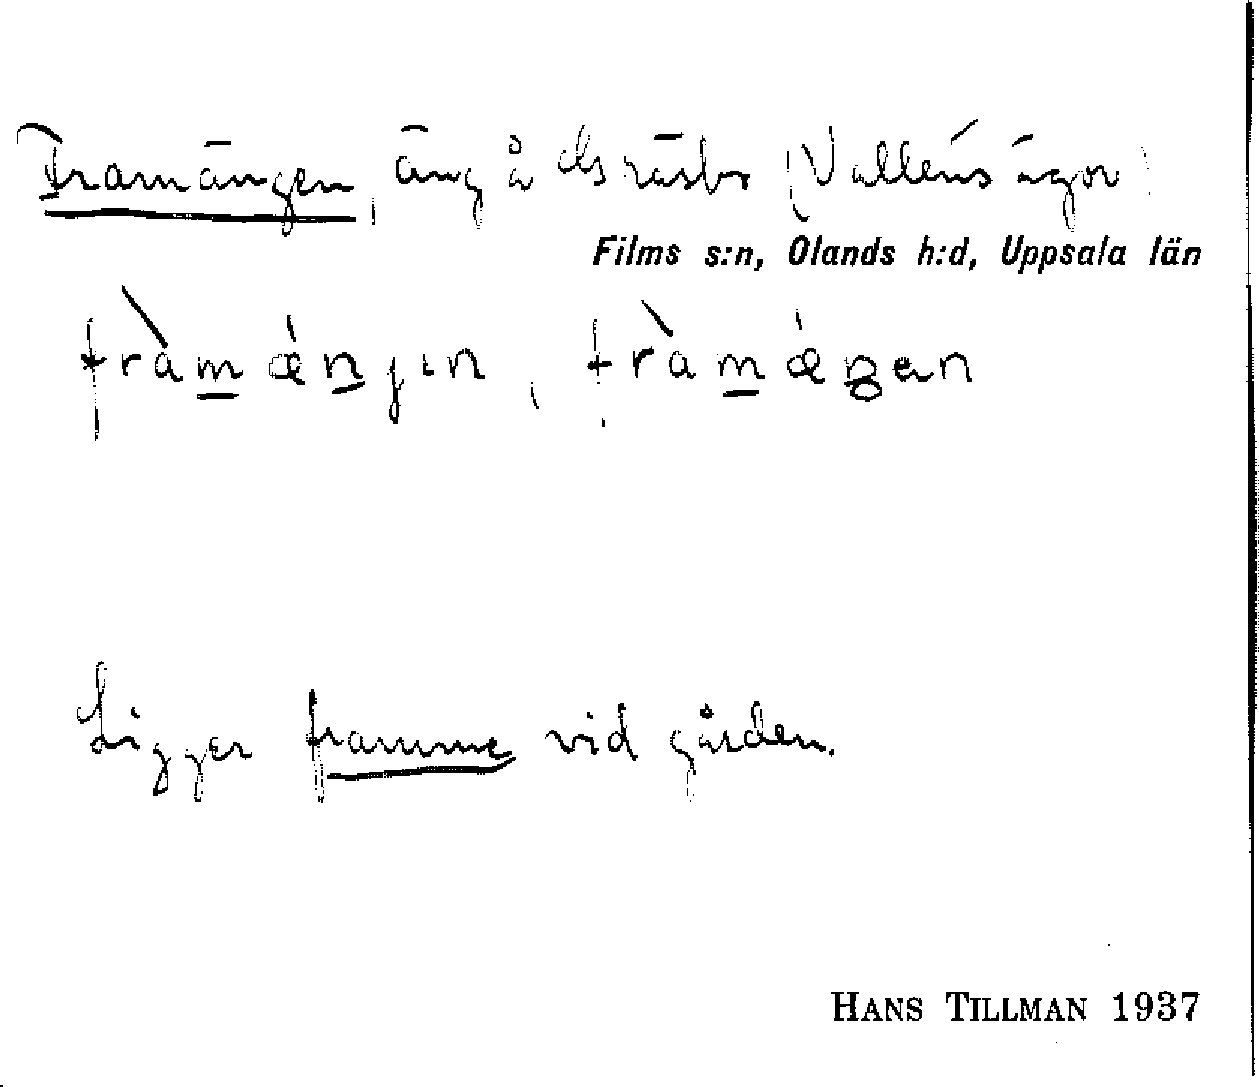 Framängen, äng å (Valléns ägor)
Films s:n, Olands h:d, Uppsala län
fràmǽnjın, fràmǽŋan
Ligger framme vid gården.
HANS TILLMAN 1937